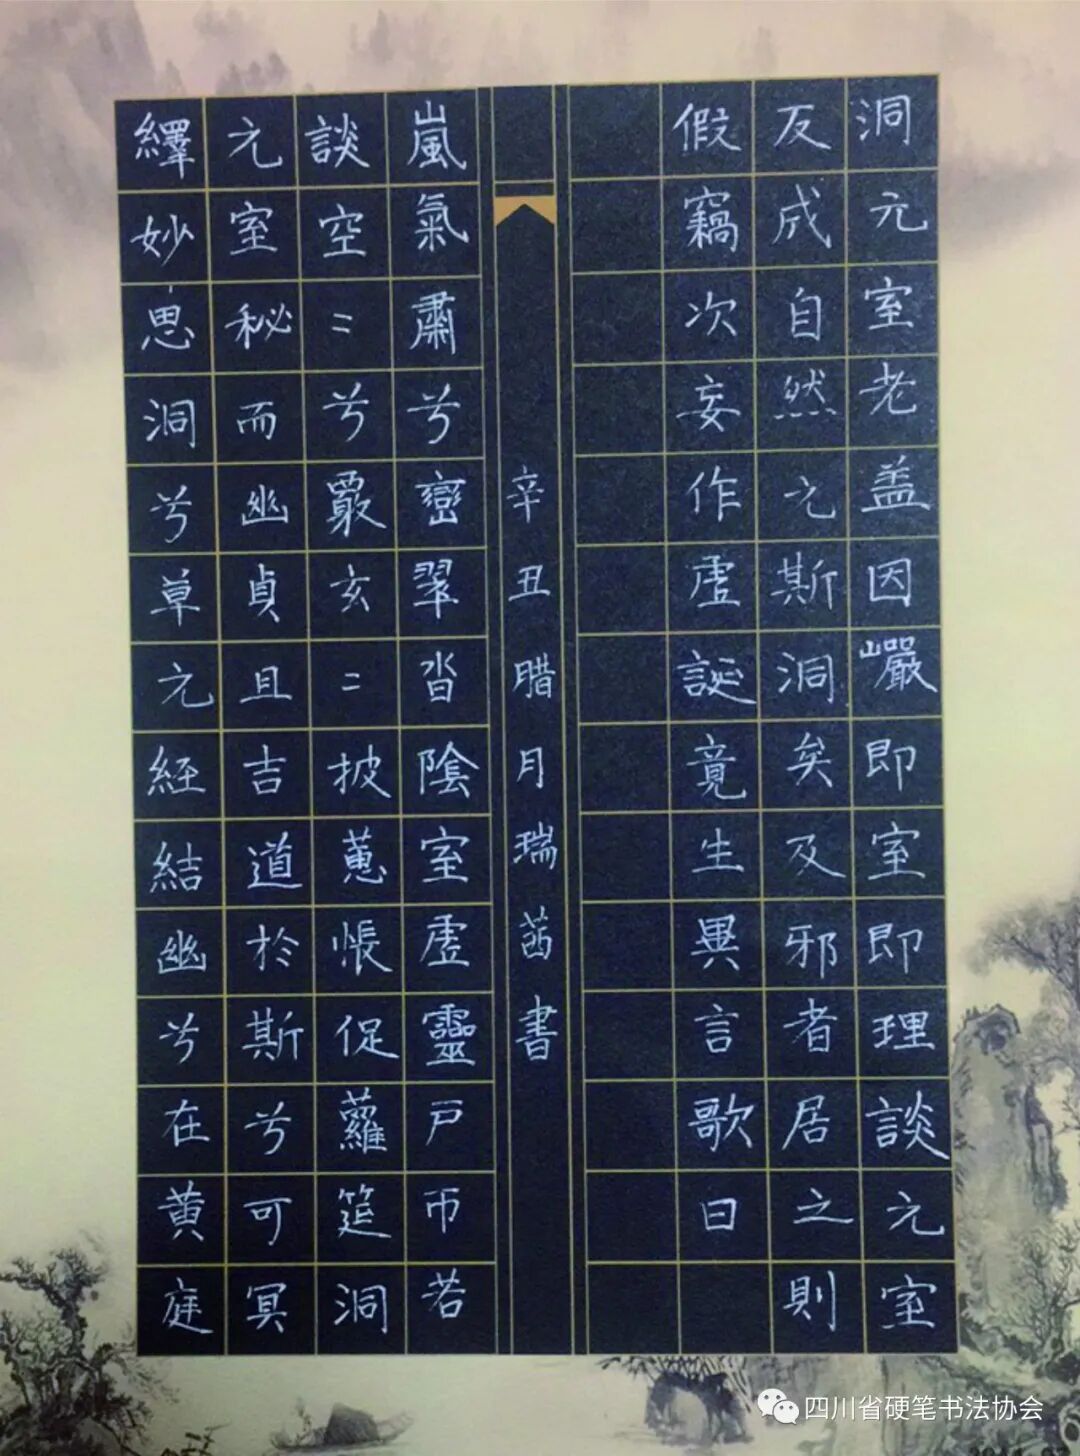 洞元室老盖因巖即室即理談元室
反成自然之斯洞矣及邪者居之則
假竊次妄作虛誕竟生異言歌曰
辛丑腊月瑞茜書
嵐氣肅兮巒翠沓陰室虛靈戸帀若
談空〻兮覈玄〻披蕙帳促蘿筵洞
元室秘而幽貞且吉道於斯兮可冥
繹妙思洞兮草元經結幽兮在黄庭
四川省硬笔书法协会